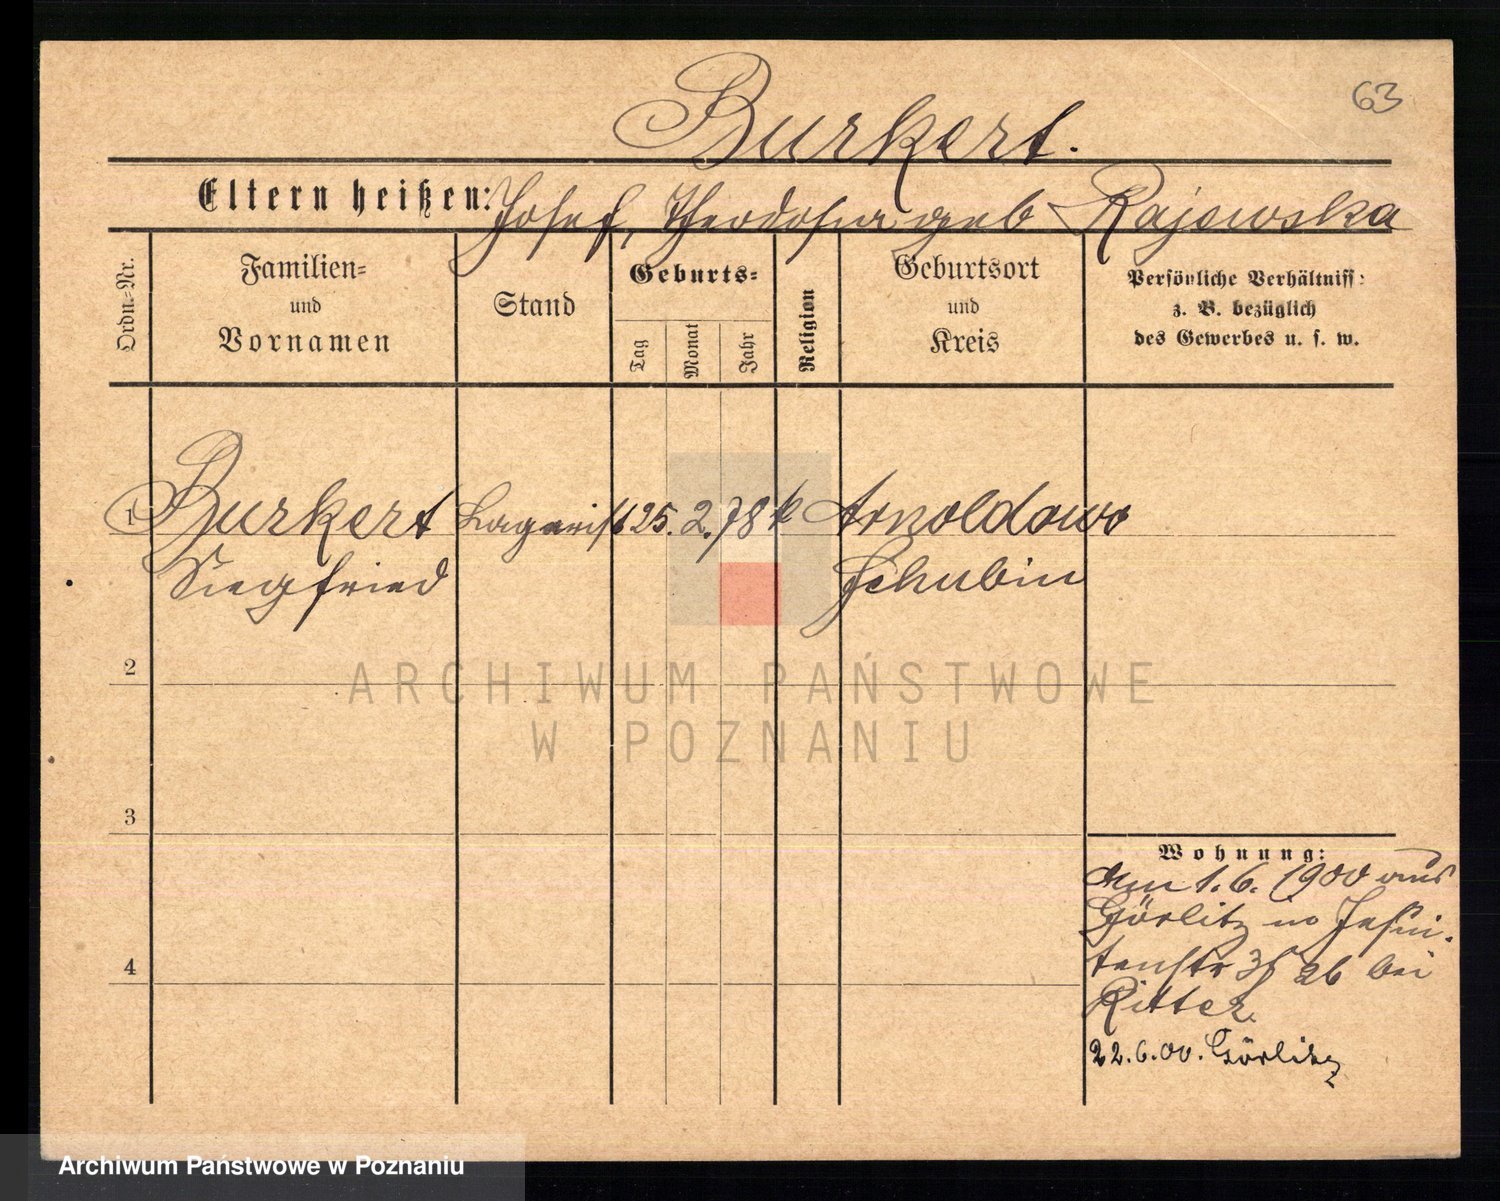 63
Burkert.
Eltern heißen: Josef, Theodosia geb Rajewska
Ordn.=Nr.
Familien=
und
Vornamen
Stand
Geburts=
Tag
Monat
Jahr
Religion
Geburtsort
und
Kreis
Persönliche Verhältniss:
z. B. bezüglich
des Gewerbes u. s. w.
1 Burkert Lagerist 25. 2. 78 k Arnoldowo
Siegfried Schubin
2
ARCHIWUM PAŃSTWOWE
W POZNANIU
3
Wohnung:
am 1. 6. 1900 aus
Görlitz no Jesui-
tenstr 26 bei
4
Ritter.
22. 6. 00. Görlitz
Archiwum Państwowe w Poznaniu